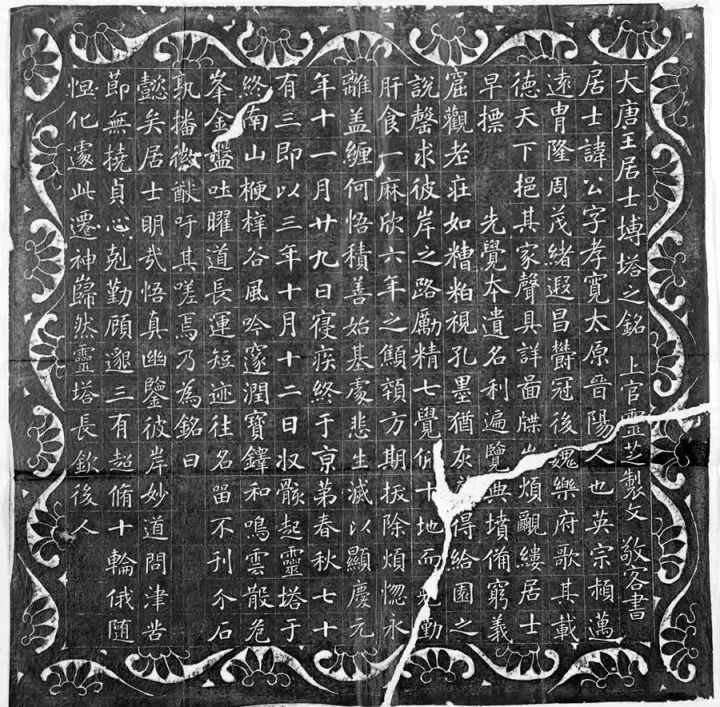 大唐王居士塼塔之銘 上官靈芝製文 敬客書
居士諱公字孝寬太原晉陽人也英宗穎邁
遠冑隆周茂緒遐昌欝冠後魏樂府歌其載
德天下挹其家聲具詳啚牒煩覼縷居士
早摽 先覺本遺名利遍覽典墳備窮義
窟觀老莊如糟粕視孔墨猶灰得給園之
說罄求彼岸之路勵精七覺仰十地而勤
肝食一麻欣六年之顦顇方期拔除煩惚永
離盖纏何悟積善始基處悲生滅以顯慶元
年十一月廿九日寑疾終于京第春秋七十
有三即以三年十月十二日収骸起靈塔于
終南山楩梓谷風吟邃澗寶鐸和鳴雲散危
峯金盤吐曜道長運短迹往名留不刊介石
孰播徽猷吁其嗟焉乃為銘曰
懿矣居士明哉悟真幽鑒彼岸妙道問津苦
節無撓貞心剋勤顧邈三有超脩十輪俄随
怛化遽此遷神巋然靈塔長欽後人